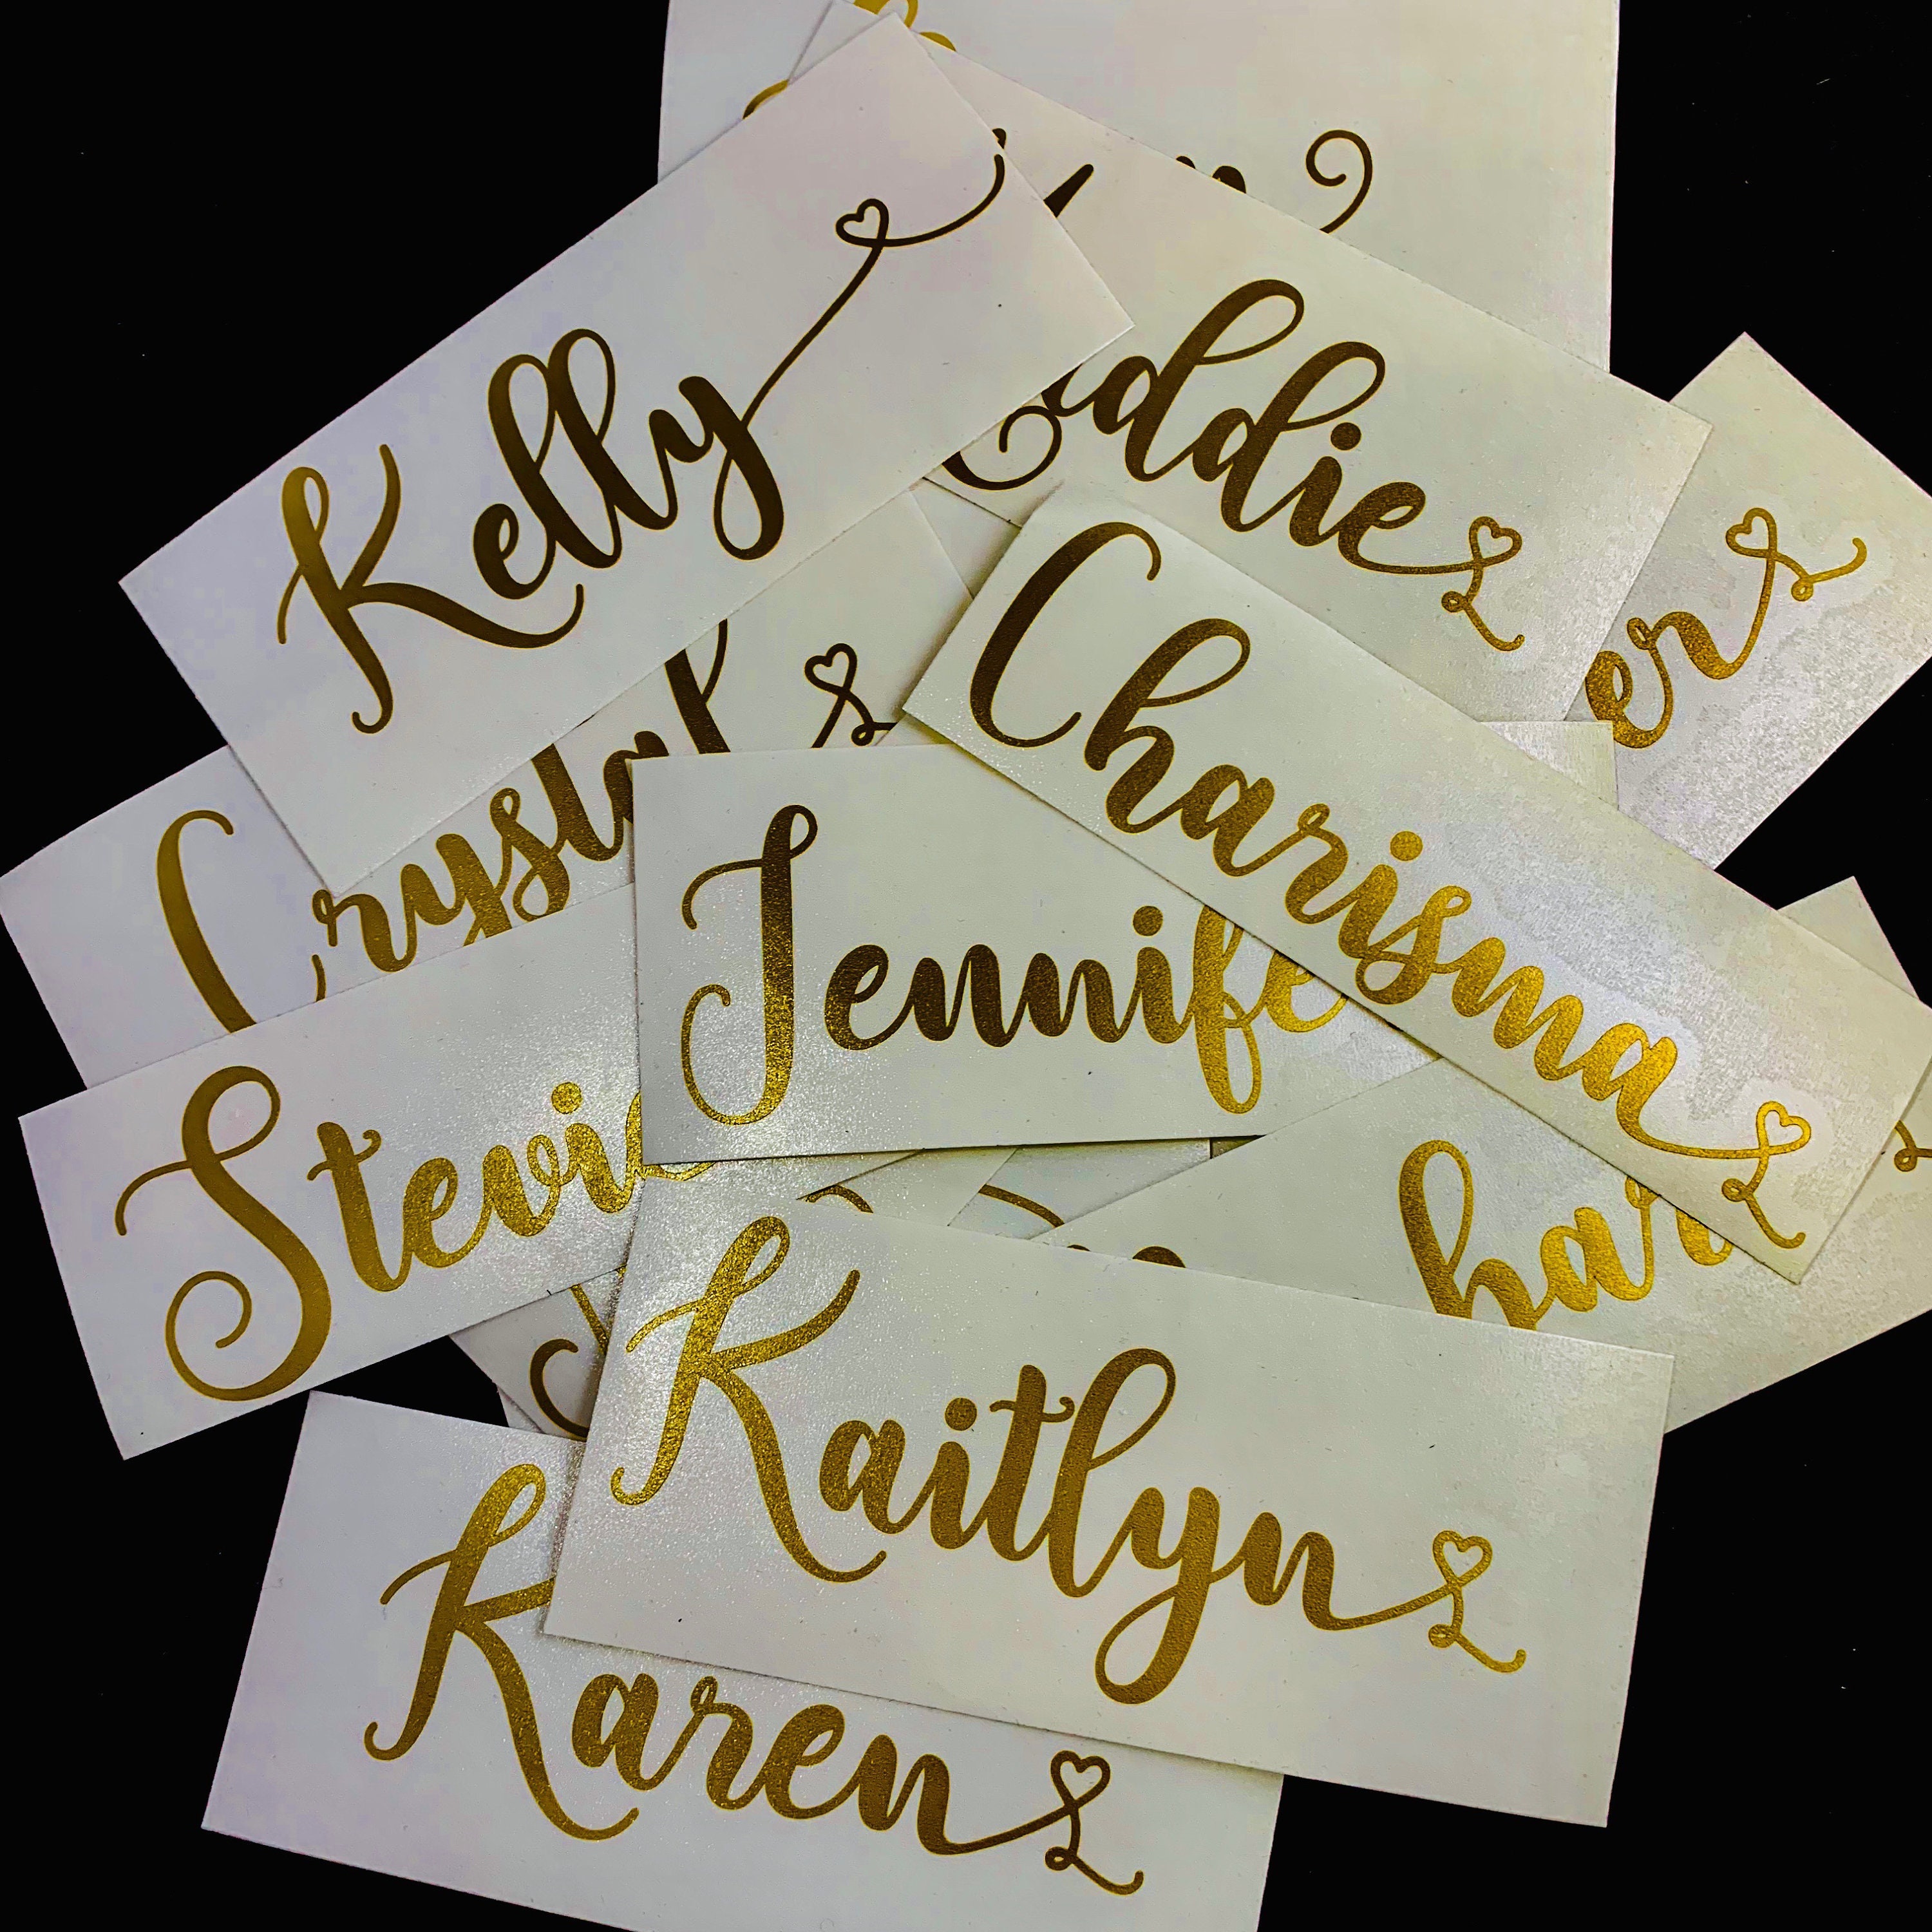 Kelly
ddie
er
Charisma
Crystal
Jennife
Stevie
har
Kaitlyn
Karen